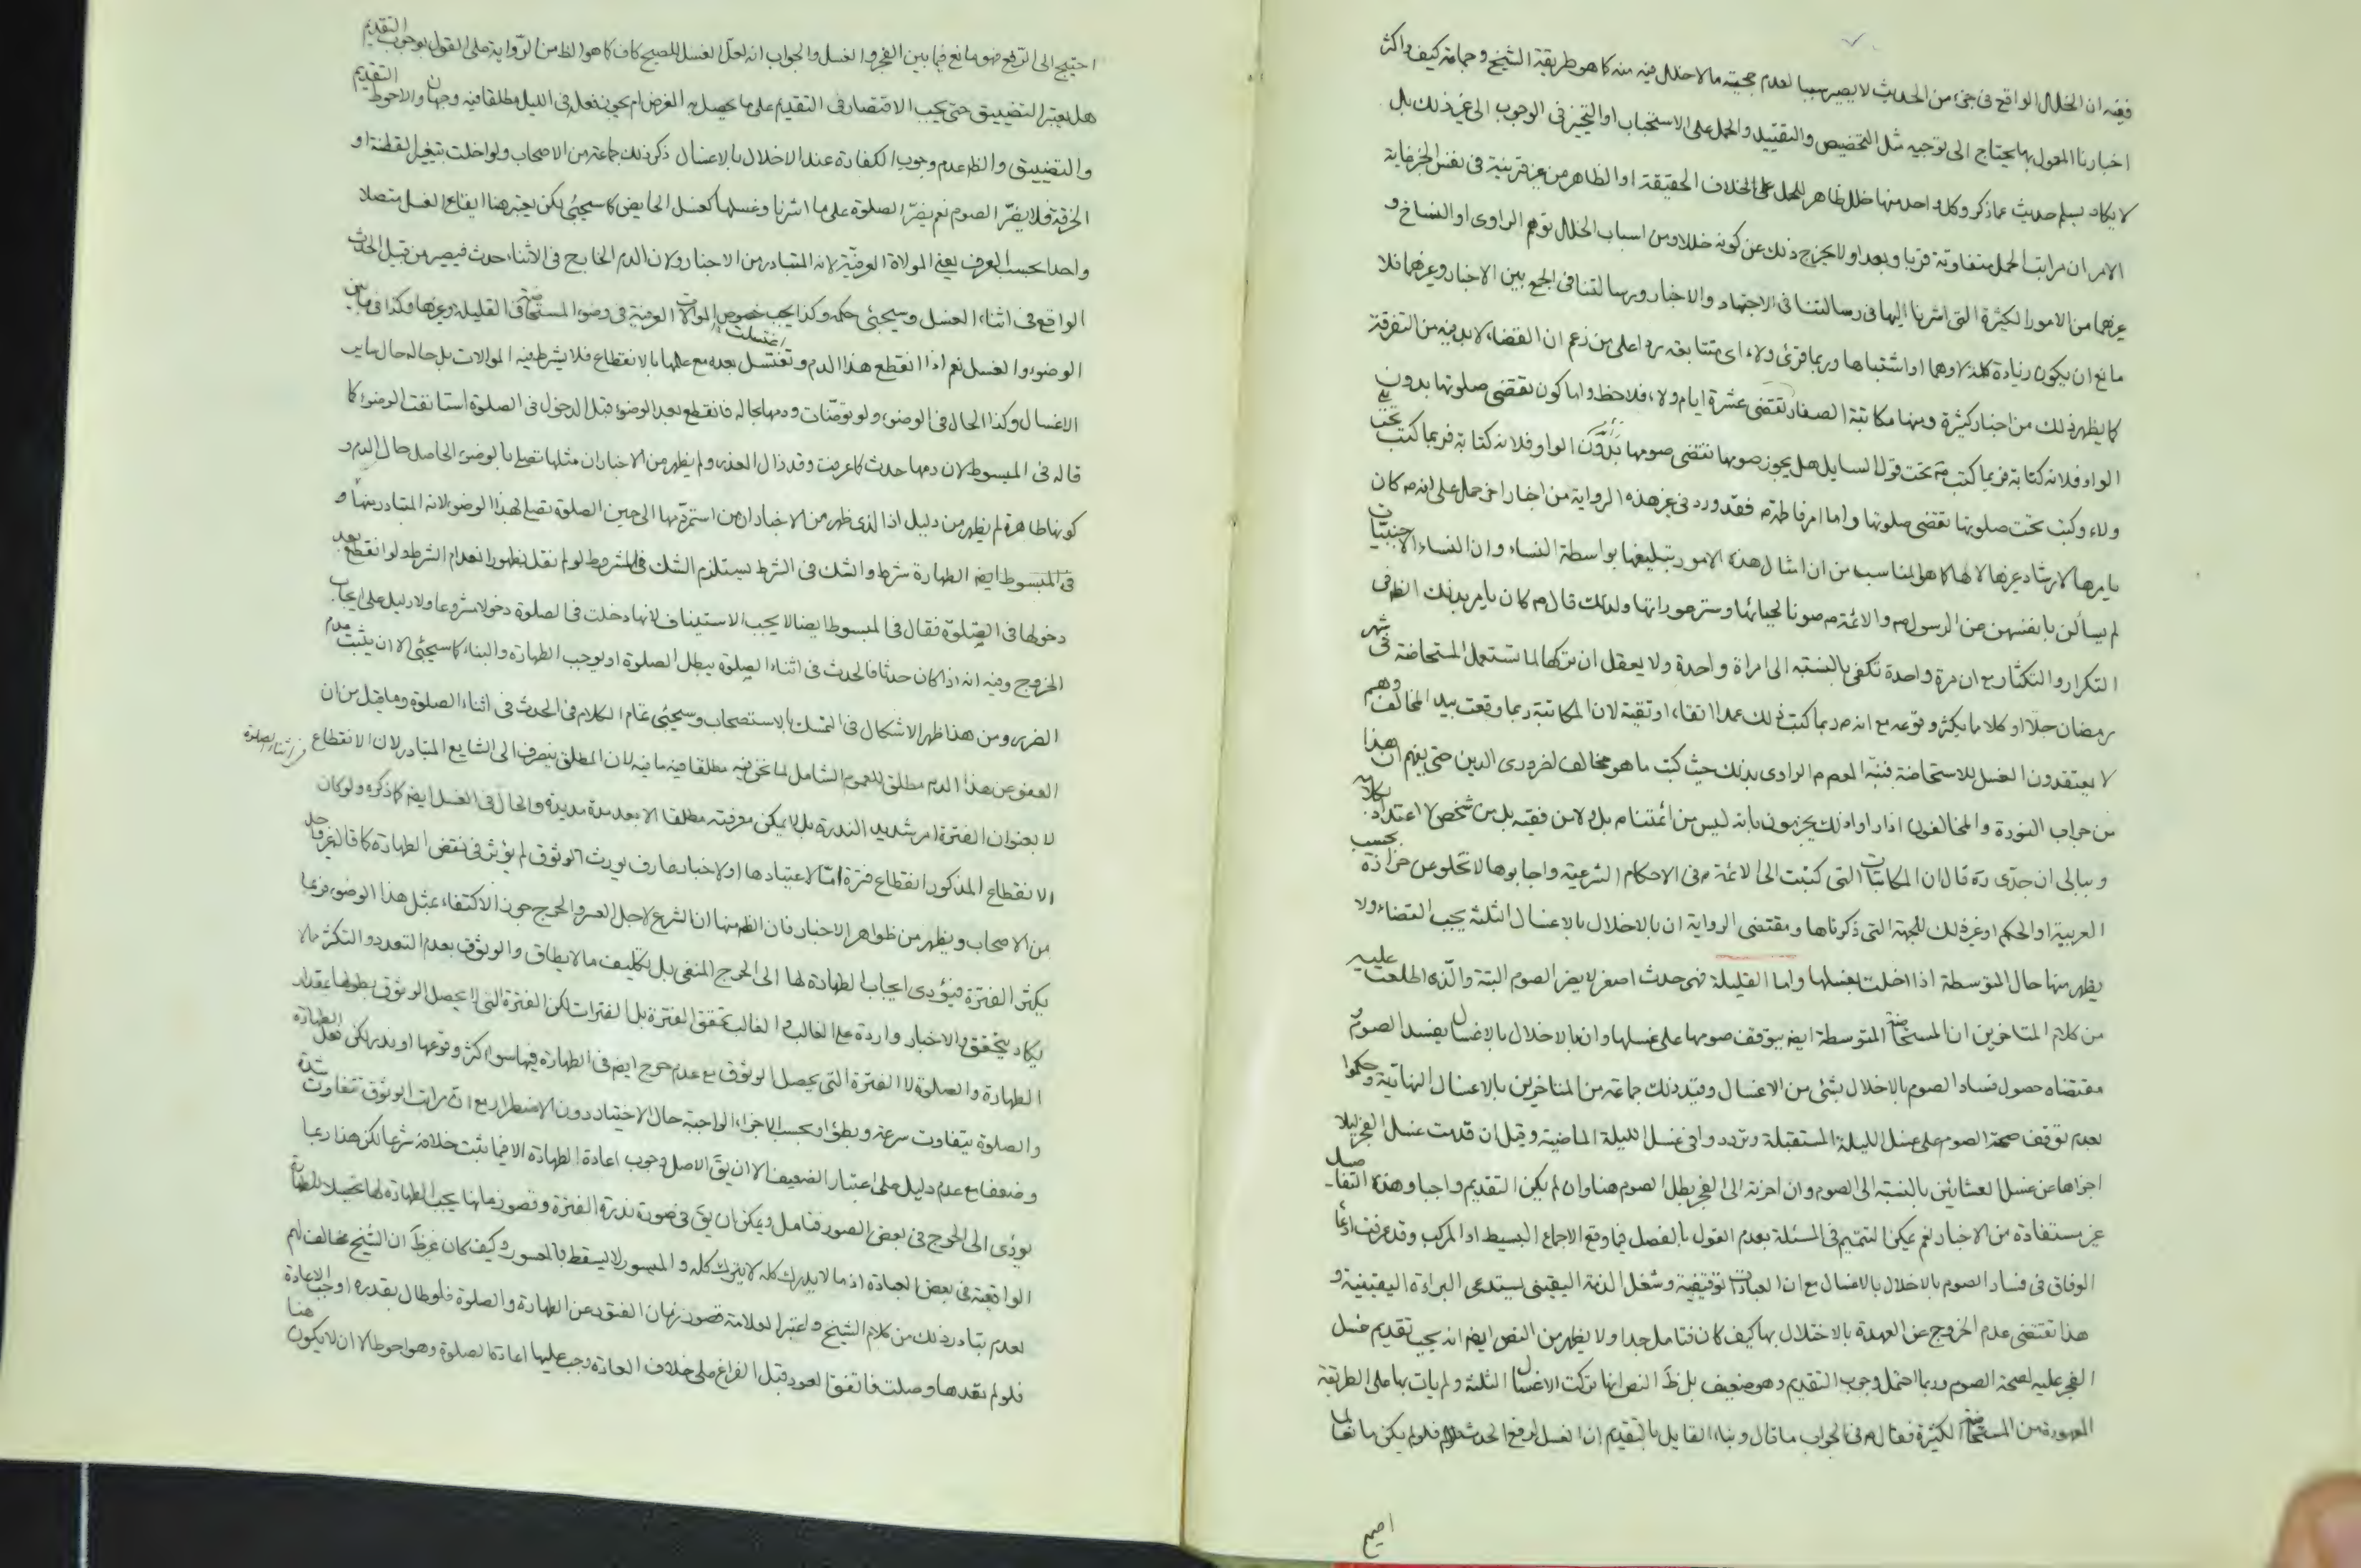 ففيه ان الخلل الواقع فى جزء من الحديث لا يصير سببا لعدم حجيته ما لا خلل فيه منه كما هو طريقة الشيخ و جماعة كيف واكثر
اخبارنا المعول بها يحتاج الى توجيه مثل التخصيص والتقييد والحمل على الاستحباب او التخيير فى الوجوب الى غير ذلك بل
لا يكاد يسلم حديث عما ذكر وكل واحد منها خلل ظاهر للحمل على خلاف الحقيقة او الظاهر من غير قرينة فى نفس الخبر غاية
الامر ان مراتب الحمل متفاوتة قربا وبعدا ولا يخرج ذلك عن كونه خللا ومن اسباب الخلل توهم الراوى او النساخ و
غيرهما من الامور الكثيرة التى اشرنا اليها فى رسالتنا فى الاجتهاد والاخبار ورسالتنا فى الجمع بين الاخبار وغيرهما فلا
مانع ان يكون زيادة كلمة لا وهما او اشتباها وربما قرئ ولاء اى متتابعة ردا على من زعم ان القضاء لا بد فيه من التفرقة
كما يظهر ذلك من اخبار كثيرة ومنها مكاتبة الصفار تقضى عشرة ايام ولاء فلاحظ واما كون تقضى صلوتها بدون
الواو فلانه كتابة فربما كتب ع تحت قول السايل هل يجوز صومها تقضى صومها بدون الواو فلانه كتابة فربما كتب تحت
ولاء وكتب تحت صلوتها تقضى صلوتها واما امر فاطمة ع فقد ورد فى غير هذه الرواية من اخبار اخر حمل على انه ص كان
يامرها لارشاد غيرها لا لها كما هو المناسب من ان امثال هذه الامور تبليغها بواسطة النساء وان النساء الاجنبيات
لم يسألن بانفسهن عن الرسول ص والائمة ع صونا لحيائها وستر عوراتها ولذلك قال ع كان يامر بذلك الظ فى
التكرار والتكثار مع ان مرة واحدة تكفى بالنسبة الى امراة واحدة ولا يعقل ان تركها لما تستعمل المستحاضة فى شهر
رمضان جلا او كلا ما يكثر وقوعه مع انه ع ربما كتب ذلك عمدا اتقاء او تقية لان المكاتبة ربما وقعت بيد المخالف وهم
لا يعتقدون الغسل للاستحاضة فنبه المعصوم الراوى بذلك حيث كتب ما هو مخالف لضرورى الدين حتى يفهم ان هذا
من جراب النورة والمخالفون اذا راوا ذلك يجزمون بانه ليس من ائمتنا ع بل ولا من فقيه بل من شخص لا اعتداد بكلامه
وببالى ان جدى ره قال ان المكاتبات التى كتبت الى الائمة ع فى الاحكام الشرعية واجابوها لا تخلو عن حزازة بحسب
العربية او الحكم او غير ذلك للجهة التى ذكرناها ومقتضى الرواية ان بالاخلال بالاغسال الثلثة يجب القضاء ولا
يظهر منها حال المتوسطة اذا اخلت بغسلها واما القليلة فهى حدث اصغر لا يضر الصوم البتة والذى اطلعت عليه
من كلام المتاخرين ان المستحاضة المتوسطة ايضا يتوقف صومها على غسلها وان بالاخلال بالاغسال يفسد الصوم و
مقتضاه حصول فساد الصوم بالاخلال بشئ من الاغسال وقيد ذلك جماعة من المتاخرين بالاغسال النهارية وحكموا
بعدم توقف صحة الصوم على غسل الليلة المستقبلة وتردد وا فى غسل الليلة الماضية وقيل ان قدمت غسل الفجر ليلا
اجزاها عن غسل العشائين بالنسبة الى الصوم وان اخرته الى الفجر بطل الصوم هنا وان لم يكن التقديم واجبا وهذه التفاصيل
غير مستفادة من الاخبار نعم يمكن التتميم فى المسئلة بعدم القول بالفصل فيما وقع الاجماع البسيط او المركب وقد عرفت انفا
الوفاق فى فساد الصوم بالاخلال بالاغسال مع ان العبادات توقيفية وشغل الذمة اليقينى يستدعى البراءة اليقينية و
هذا تقتضى عدم الخروج عن العهدة بالاختلال بها كيف كان فتامل جدا ولا يظهر من النص ايضا انه يجب تقديم غسل
الفجر عليه لصحة الصوم وربما احتمل وجوب التقديم وهو ضعيف بل ظ النص انها تركت الاغسال الثلثة ولم يات بها على الطريقة
المعهودة من المستحاضة الكثيرة فقال ع فى الجواب ما قال وبناء القايل بالتقديم ان الغسل لرفع الحدث فلو لم يكن مانعا لما
احتيج
احتيج الى الرفع فهو مانع فيما بين الفجر والغسل والجواب انه لعل الغسل للصبح كاف كما هو الظ من الرواية على القول بوجوب التقديم
هل يعتبر التضييق حتى يجب الاقتصار فى التقديم على ما يحصل به الغرض ام يجوز فعله فى الليل مطلقا فيه وجهان والاحوط التقديم
والتضييق والظ عدم وجوب الكفارة عند الاخلال بالاغسال ذكر ذلك جماعة من الاصحاب ولو اخلت بتغيير القطنة او
الخرقة فلا يضر الصوم نعم يضر الصلوة على ما اشرنا وغسلها كغسل الحايض كما سيجئ لكن يعتبر هنا ايقاع الغسل متصلا
واحدا بحسب العرف يعنى الموالاة العرفية لانه المتبادر من الاخبار ولان الدم الخارج فى الاثناء حدث فيصير من قبيل الحدث
الواقع فى اثناء الغسل وسيجئ حكمه وكذا يجب خصوص الموالات العرفية فى وضوء المستحاضة فى القليلة وغيرها وكذا فيما بين
الوضوء والغسل نعم اذا انقطع هذا الدم وتغتسل اغتسلت بعده مع علمها بالانقطاع فلا يشترط فيه الموالات بل حاله حال ساير
الاغسال وكذا الحال فى الوضوء ولو توضات ودمها بحاله فانقطع بعد الوضوء قبل الدخول فى الصلوة استانفت الوضوء كما
قاله فى المبسوط لان دمها حدث كما عرفت وقد زال العذر ولم يظهر من الاخبار ان مثلها تصلى بالوضوء الحاصل حال الدم و
كونها طاهرة لم يظهر من دليل اذ الذى ظهر من الاخبار ان من استمر دمها الى حين الصلوة تصلى بهذا الوضوء لانه المتبادر منها و
فى المبسوط ايضا الطهارة شرط والشك فى الشرط يستلزم الشك فى المشروط لو لم نقل بظهور انعدام الشرط ولو انقطع بعد
دخولها فى الصلوة فقال فى المبسوط ايضا لا يجب الاستيناف لانها دخلت فى الصلوة دخولا مشروعا ولا دليل على ايجاب
الخروج وفيه انه اذا كان حدثا فالحدث فى اثناء الصلوة يبطل الصلوة او يوجب الطهارة والبناء كما سيجئ الا ان يثبت عدم
الضرر ومن هذا ظهر الاشكال فى التمسك بالاستصحاب وسيجئ تمام الكلام فى الحدث فى اثناء الصلوة وما قيل من ان
العفو عن هذا الدم مطلق للعموم الشامل لما نحن فيه مطلقا فيه ما فيه لان المطلق ينصرف الى الشايع المتبادر لان الانقطاع فى اثناء الصلوة
لا بعنوان الفترة امر شديد الندرة بل لا يمكن معرفته مطلقا الا بعد مدة مديدة والحال فى الغسل ايضا كما ذكره ولو كان
الانقطاع المذكور انقطاع فترة اما لاعتيادها او لاخبار عارف يورث الوثوق لم يؤثر فى نقض الطهارة كما قاله غير واحد
من الاصحاب ويظهر من ظواهر الاخبار فان الظ منها ان الشرع لاجل العسر والحرج جوز الاكتفاء بمثل هذا الوضوء فربما
يكثر الفترة فيؤدى ايجاب الطهارة لها الى الحرج المنفى بل تكليف ما لا يطاق والوثوق بعدم التعدد والتكثر مما لا
يكاد يتحقق والاخبار واردة على الغالب والغالب تحقق الفترة بل الفترات لكن الفترة التى لا يحصل الوثوق بطولها بمقدار
الطهارة والصلوة لا الفترة التى يحصل الوثوق مع عدم حرج ايضا فى الطهارة فيها سواء كثر وقوعها او ندر لكن فعل الطهارة
والصلوة يتفاوت سرعة وبطؤا وبحسب الاجزاء الواجبة حال الاختيار دون الاضطرار مع ان مراتب الوثوق تتفاوت شدة
وضعفا مع عدم دليل على اعتبار الضعيف الا ان يق الاصل وجوب اعادة الطهارة الا فيما ثبت خلافه شرعا لكن هذا ربما
يؤدى الى الحرج فى بعض الصور فتامل ويمكن ان يق فى صورة ندرة الفترة وقصور زمانها يجب الطهارة لها تحصيلا للطهارة
الواقعية فى بعض العبادة اذ ما لا يدرك كله لا يترك كله والميسور لا يسقط بالمعسور وكيف كان غير ظ ان الشيخ مخالف لهم
لعدم تبادر ذلك من كلام الشيخ واعتبر العلامة قصور زمان الفتور عن الطهارة والصلوة فلو طال بقدره اوجب الاعادة هنا
فلو لم تعدها وصلت فاتفق العود قبل الفراغ على خلاف العادة وجب عليها اعادة الصلوة وهو احوط الا ان لا يكون